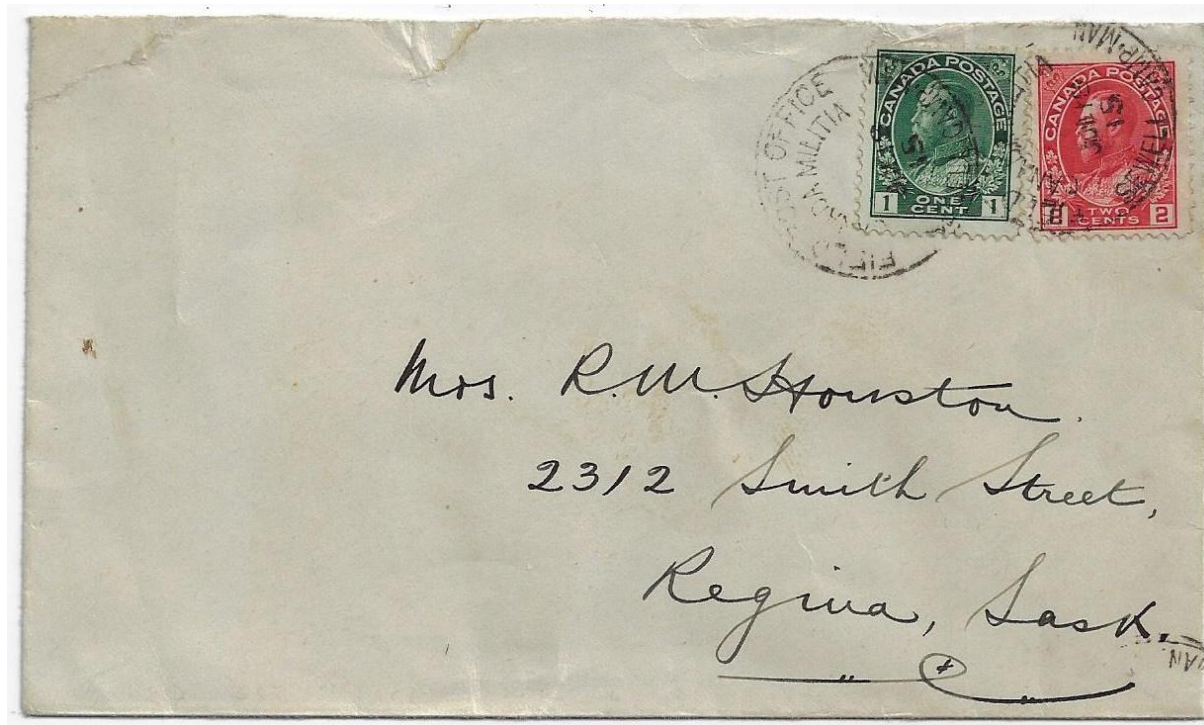 FIELD POST OFFICE
CANADA MILITIA
15
CANADA POSTAGE
1 ONE CENT 1
SEWELL CAMP. MAN
15
CANADA POSTAGE
TWO CENTS 2
Mrs. R.W. Houston.
2312 Smith Street,
Regina, Sask.
MAN